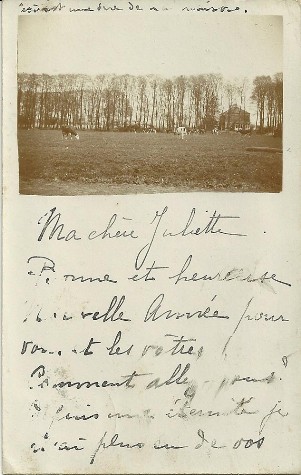 est une vue de
Ma chère Juliette
Bonne et heureuse
Nouvelle Année pour
vous et les vôtres!
Comment allez-vous?
Depuis une éternité je
n'ai plus eu de vos